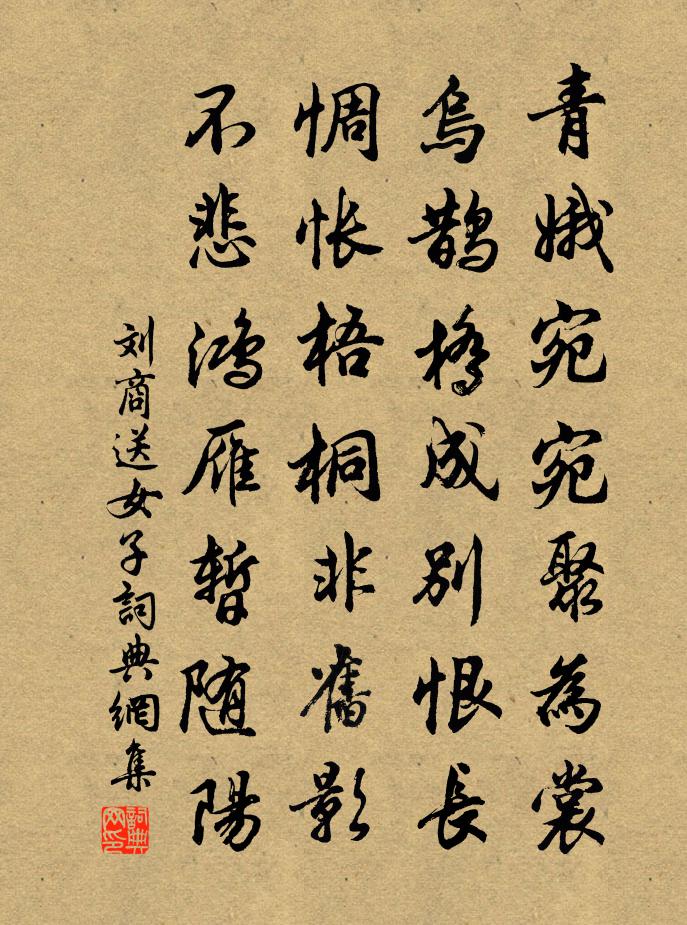 青娥宛宛聚為裳
烏鵲橋成別恨長
惆悵梧桐非舊影
不悲鴻雁暫随陽
刘商送女子詞典網集
詞典網印